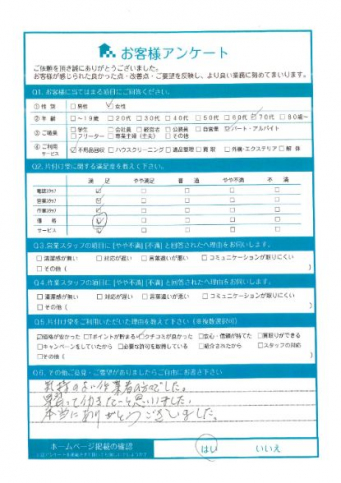 お客様アンケート
ご依頼を頂き誠にありがとうございました。
お客様が感じられた良かった点・改善点・ご要望を反映し、より良い業務に努めてまいります。
Q1. お客様に当てはまる項目にご記入ください。
① 性 別 □男性 ☑女性
② 年 齢 □~19歳 □20代 □30代 □40代 □50代 □60代 ☑70代 □80歳~
③ ご職業 □学生 □会社員 □経営者 □公務員 □自営業 ☑パート・アルバイト
□フリーター □専業主婦(主夫) □その他
④ ご利用サービス ☑不用品回収 □ハウスクリーニング □遺品整理 □買取 □外構・エクステリア □解体
Q2. 片付け堂に関する満足度を教えて下さい。
満 足 やや満足 普 通 やや不満 不 満
電話スタッフ ☑ □ □ □ □
営業スタッフ ☑ □ □ □ □
作業スタッフ ☑ □ □ □ □
価 格 ☑ □ □ □ □
サービス ☑ □ □ □ □
Q3.営業スタッフの項目に[やや不満][不満]と回答された方へ理由をお伺いします。
□清潔感が無い □対応が遅い □言葉遣いが悪い □コミュニケーションが取りにくい
□その他( )
Q4.作業スタッフの項目に[やや不満][不満]と回答された方へ理由をお伺いします。
□清潔感が無い □対応が遅い □言葉遣いが悪い □コミュニケーションが取りにくい
□その他( )
Q5.片付け堂をご利用いただいた理由を教えて下さい(※複数選択可)
☑価格が安かった □Tポイントが貯まる ☑クチコミが良かった □安心・信頼が持てた □買取りができる
□キャンペーンをしていたから □必要な許可を取得している □紹介されたから □スタッフの対応
□その他( )
Q6. その他ご意見・ご要望がありましたらご自由にお書き下さい
気持の良い作業者の方でした。
本当にありがとうございました。
ホームページ掲載の確認
はい いいえ